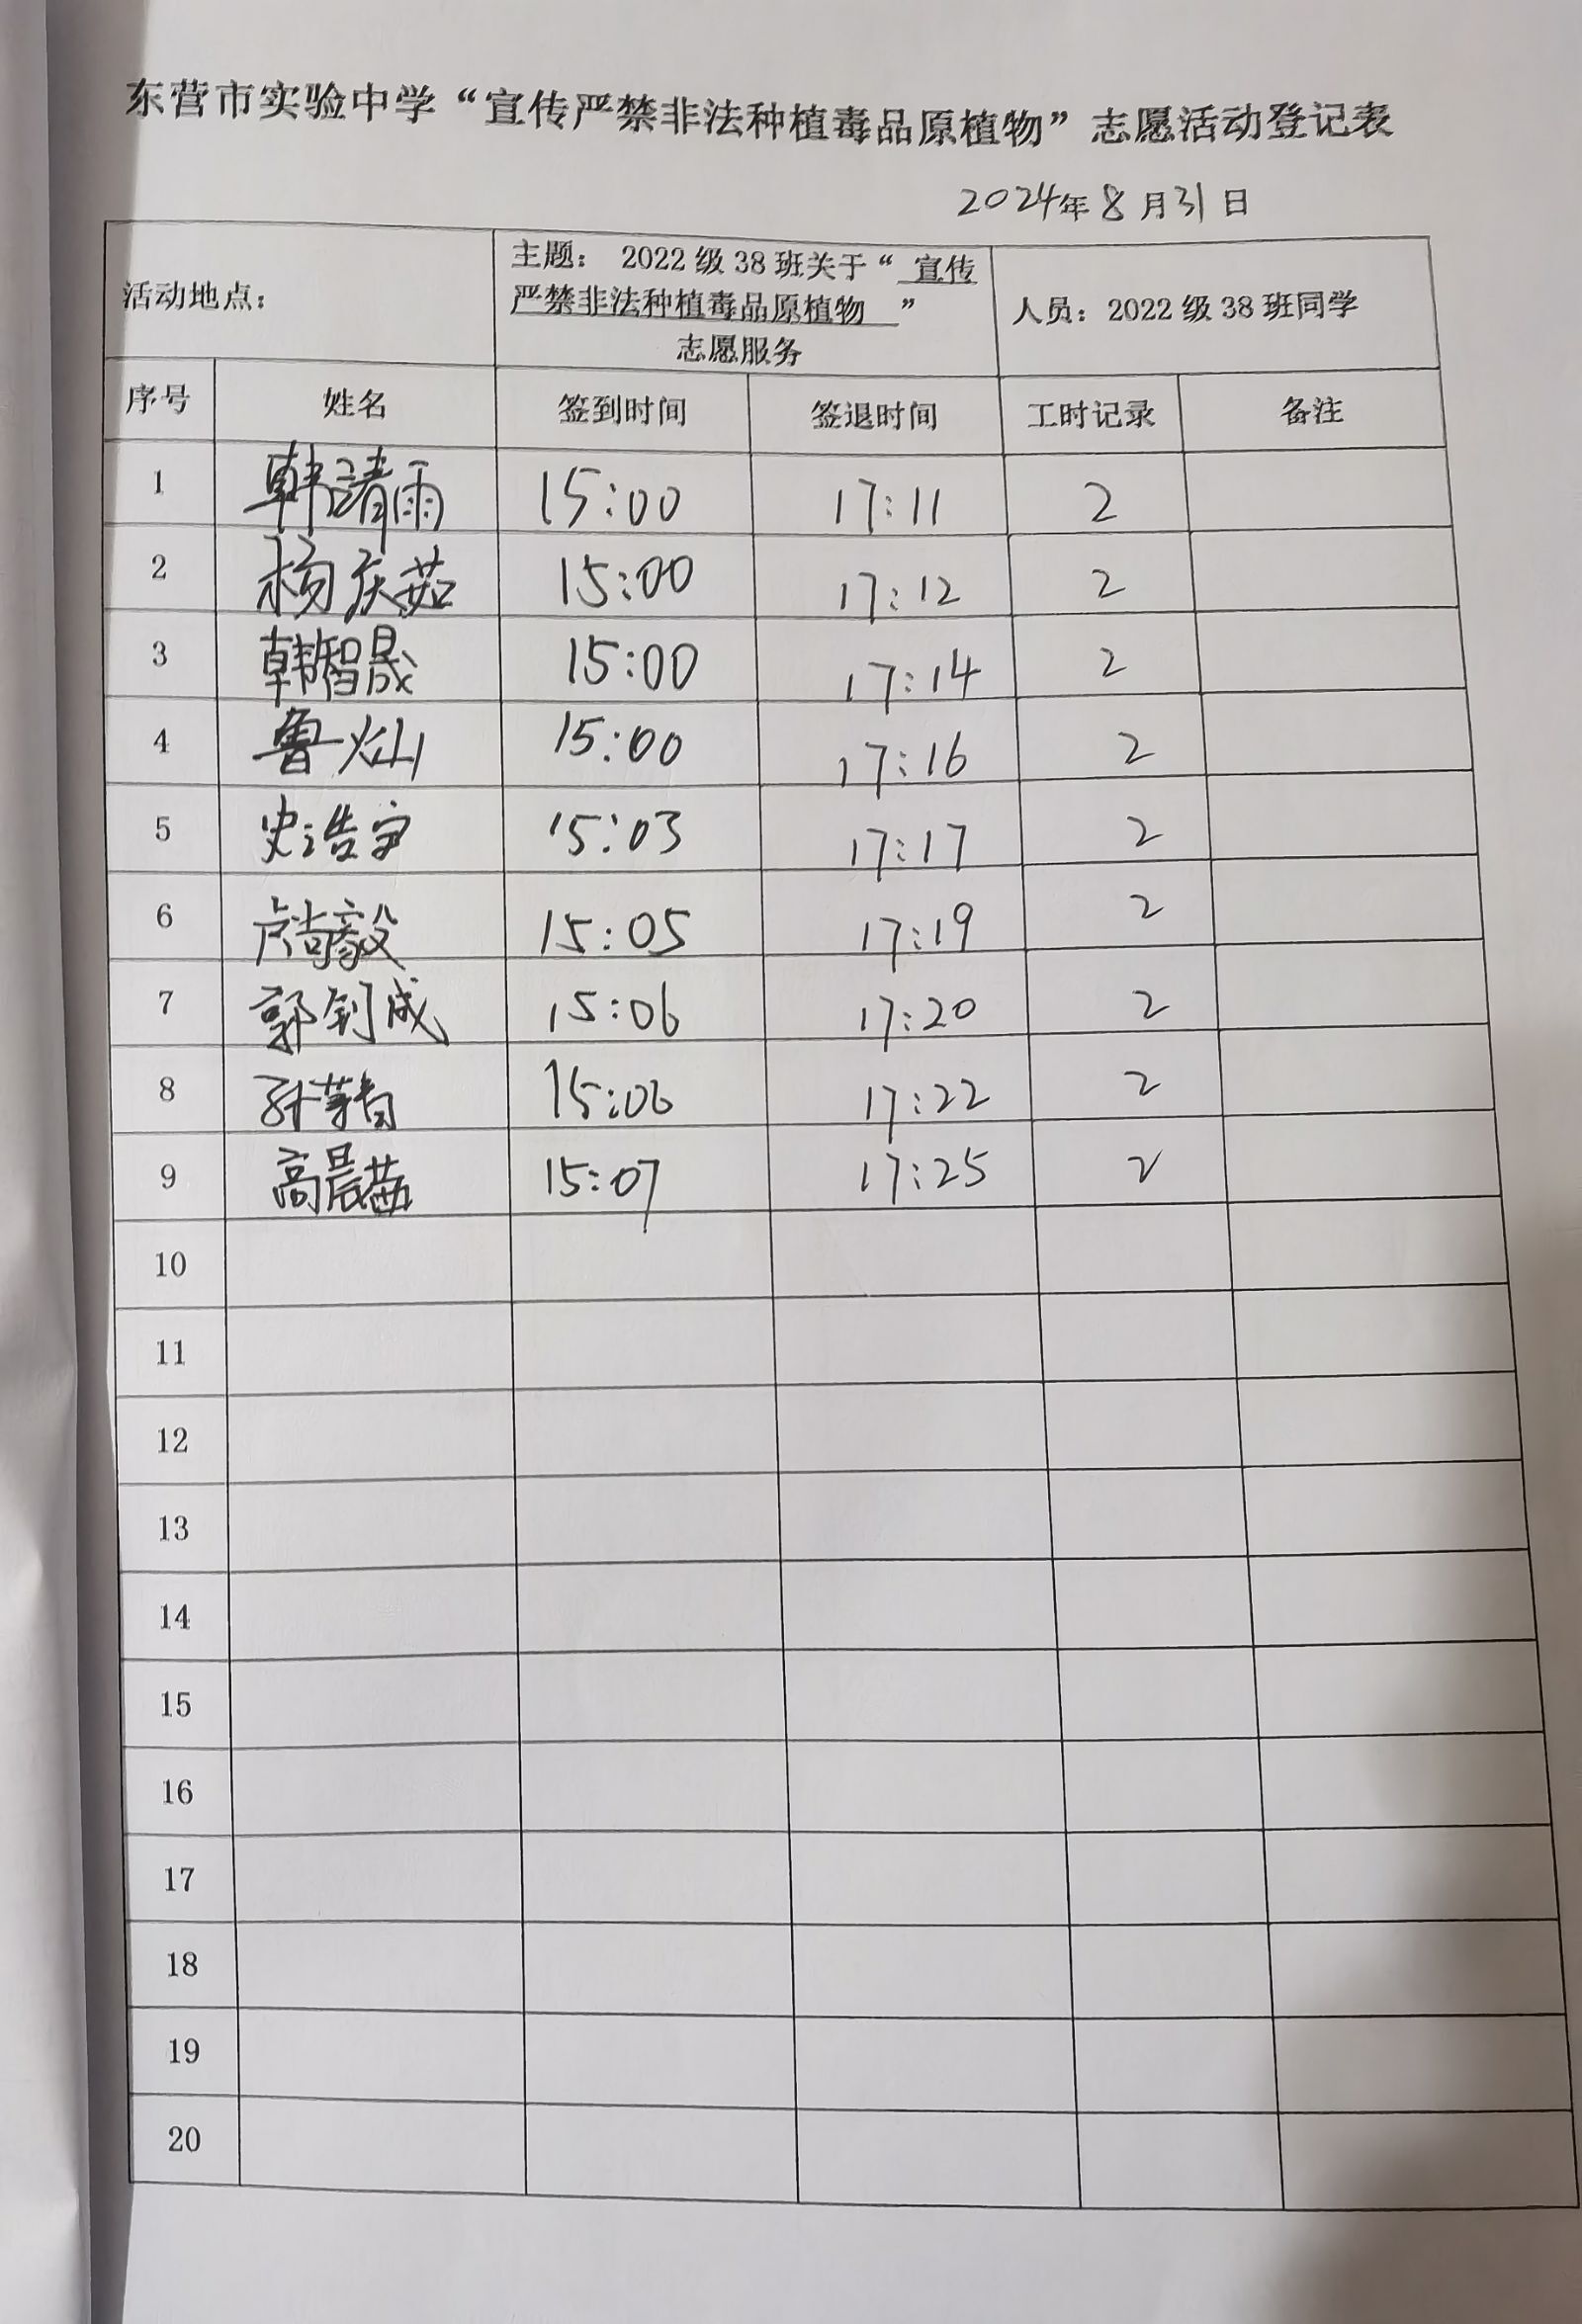 东营市实验中学“宣传严禁非法种植毒品原植物”志愿活动登记表
2024年8月31日
活动地点：
主题： 2022级38班关于“ 宣传
严禁非法种植毒品原植物 ”
志愿服务
人员：2022级38班同学
序号 姓名 签到时间 签退时间 工时记录 备注
1 韩靖雨 15:00 17:11 2
2 杨庆茹 15:00 17:12 2
3 韩智晟 15:00 17:14 2
4 鲁灿 15:00 17:16 2
5 史浩宇 15:03 17:17 2
6 卢尚毅 15:05 17:19 2
7 郭钊成 15:06 17:20 2
8 15:06 17:22 2
9 高晨茜 15:07 17:25 2
10
11
12
13
14
15
16
17
18
19
20